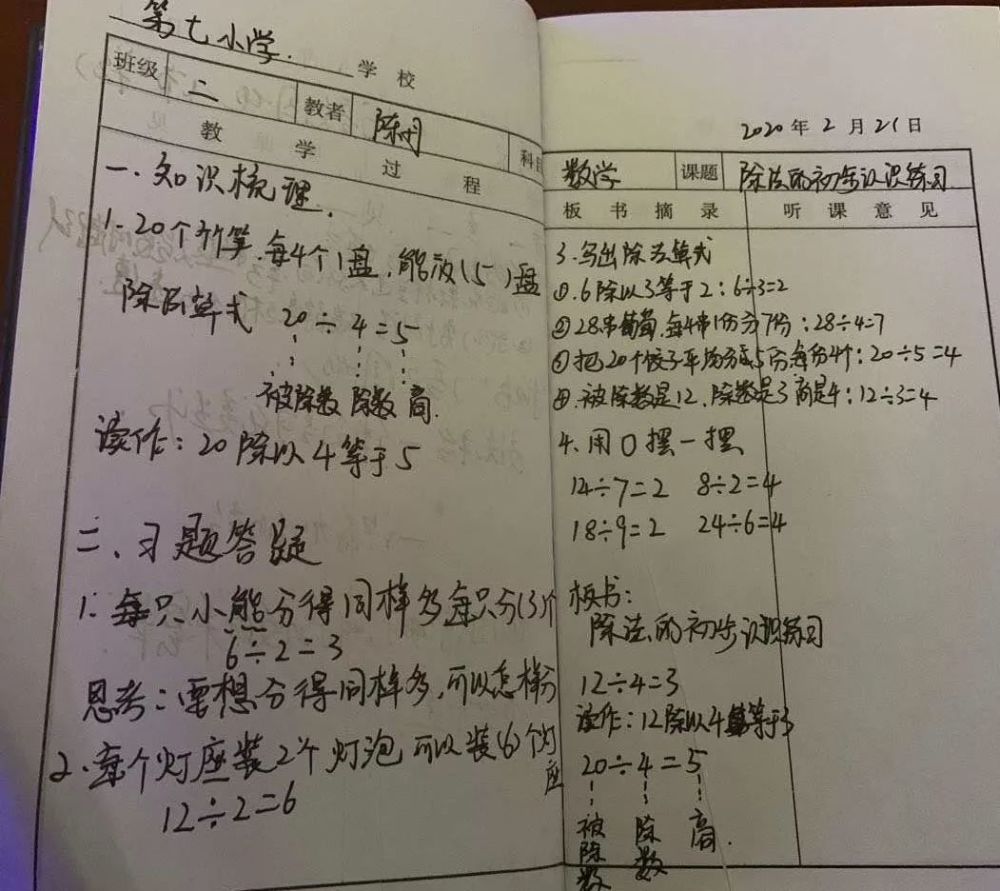 第七小学 学校
班级 二 教者 陈 科目
教学过程
一、知识梳理.
1. 20个竹笋,每4个1盘,能放(5)盘
除法算式 20÷4=5
被除数 除数 商.
读作:20除以4等于5
二、习题答疑
1. 每只小熊分得同样多每只分(3)个
6÷2=3
思考:要想分得同样多,可以怎样分
2. 每个灯座装2个灯泡 可以装(6)个灯座
12÷2=6
2020年2月21日
数学 课题 除法的初步认识练习
板书摘录 听课意见
3. 写出除法算式
①.6除以3等于2:6÷3=2
②28串葡萄,每4串1份分7份:28÷4=7
③把20个饺子平均分成5份每份4个:20÷5=4
④.被除数是12,除数是3商是4:12÷3=4
4. 用○摆一摆
14÷7=2 8÷2=4
18÷9=2 24÷6=4
板书:
除法的初步认识练习
12÷4=3
读作:12除以4等于3
20÷4=5
被除数 除数 商.